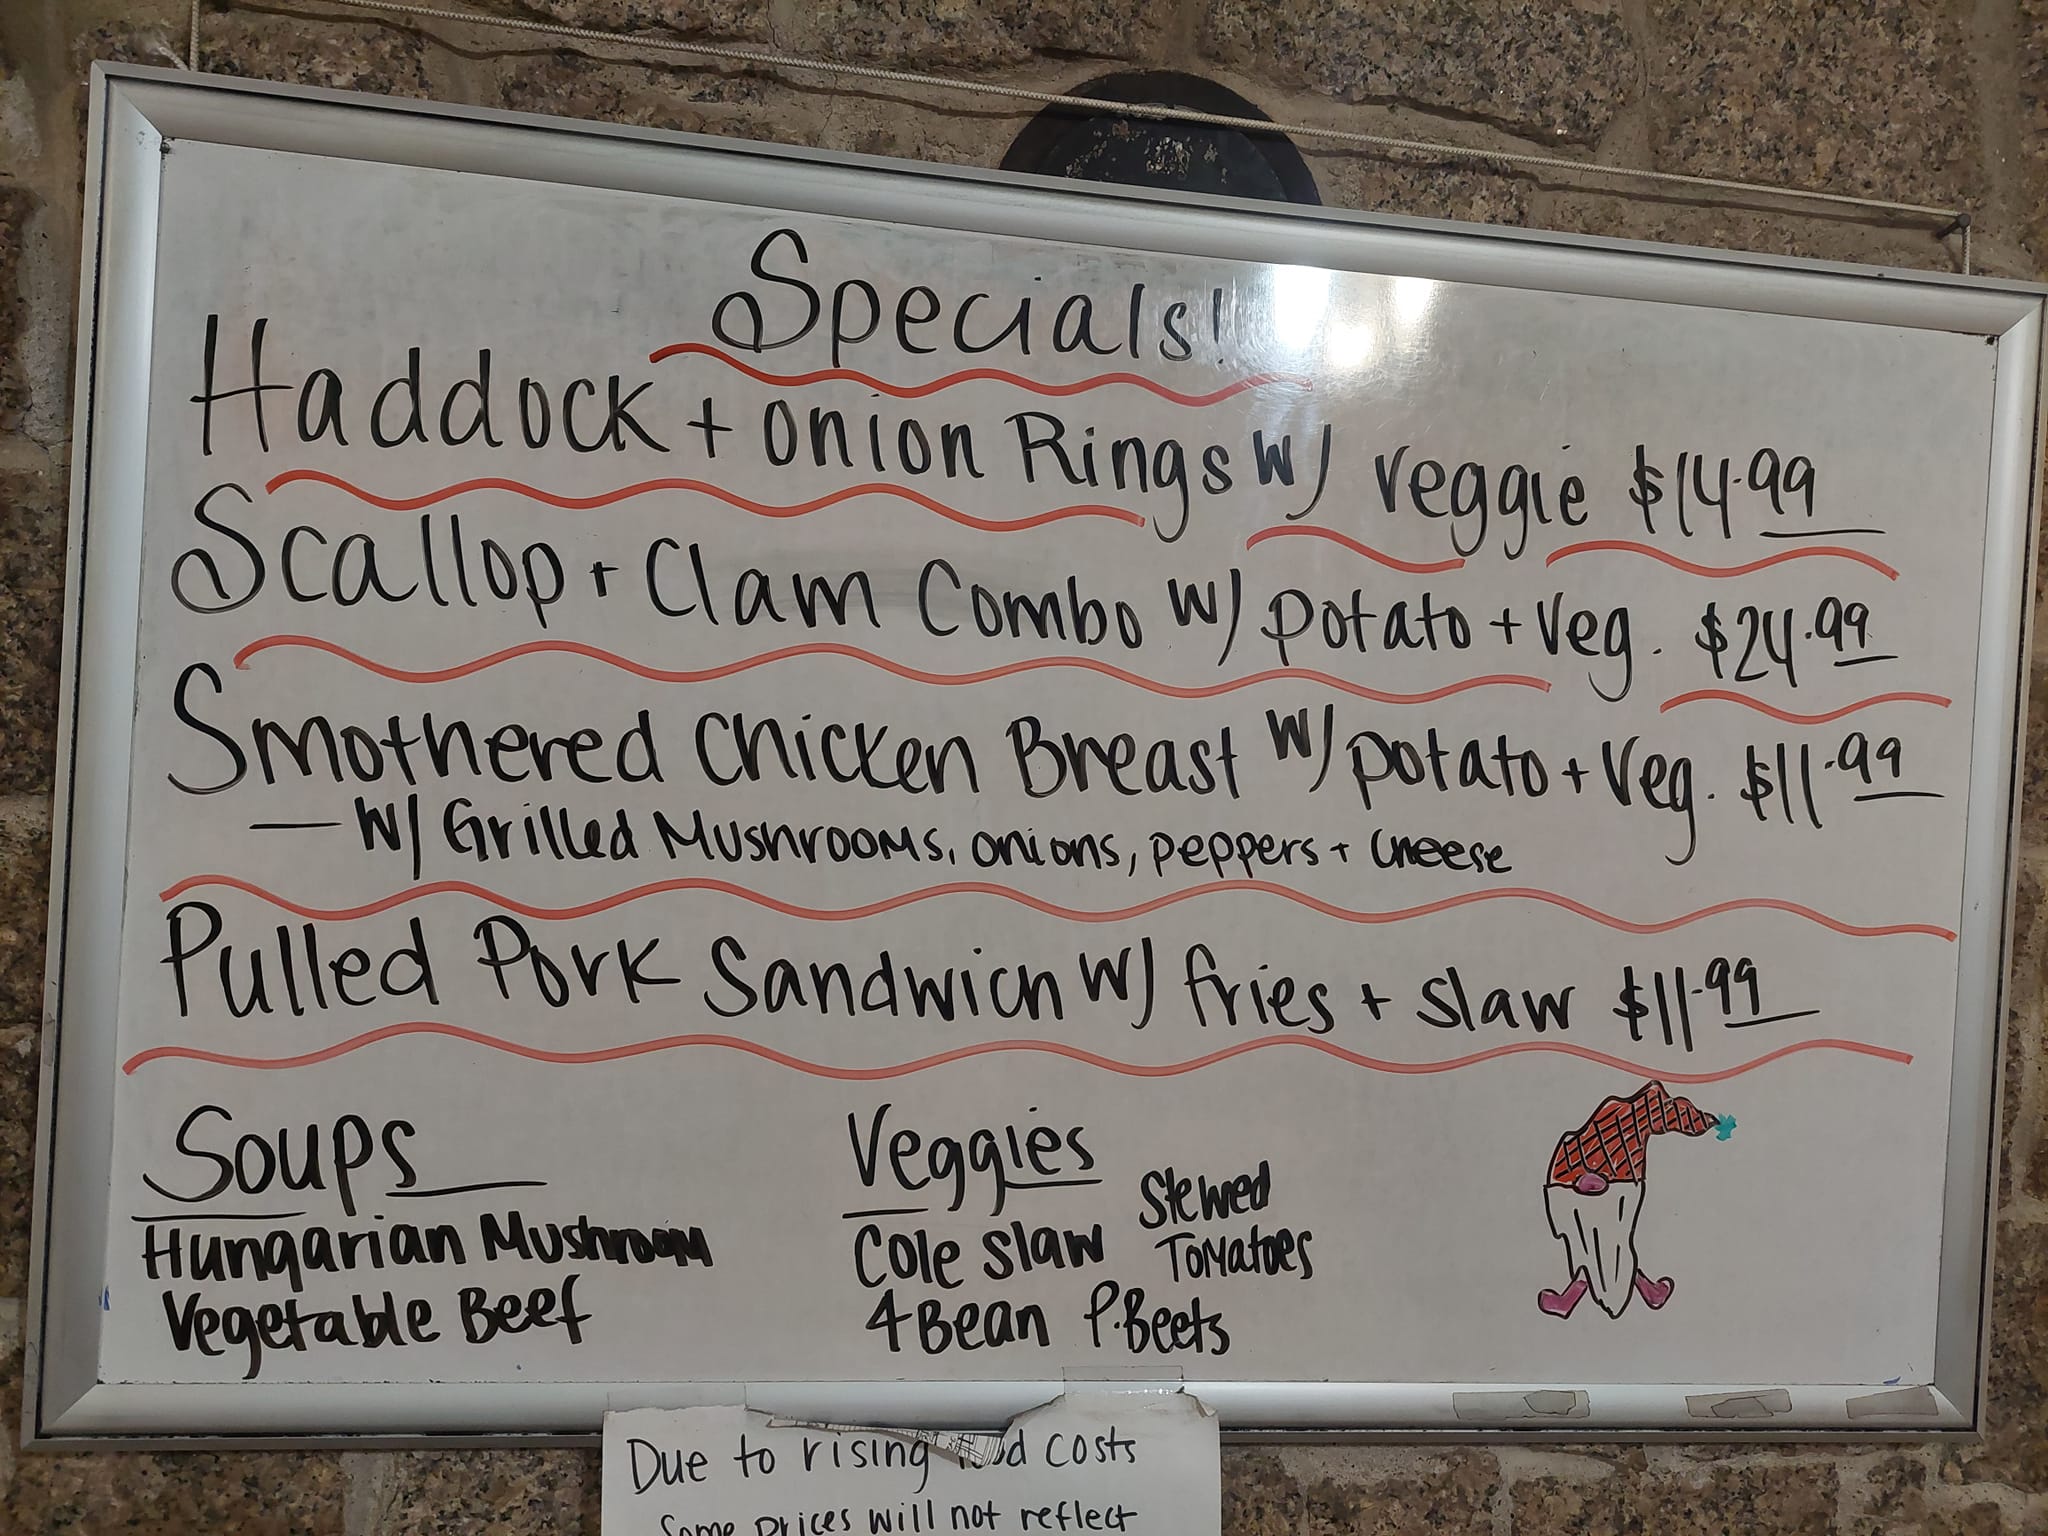 Specials!
Haddock + Onion Rings w/ Veggie $14.99
Scallop + Clam Combo w/ potato + Veg. $24.99
Smothered Chicken Breast w/ potato + Veg. $11.99
— w/ Grilled Mushrooms, onions, peppers + cheese
Pulled Pork Sandwich w/ fries + slaw $11.99
Soups
Hungarian Mushroom
Vegetable Beef
Veggies
Cole Slaw
Stewed
Tomatoes
4 Bean P. Beets
Due to rising food costs
Some prices will not reflect